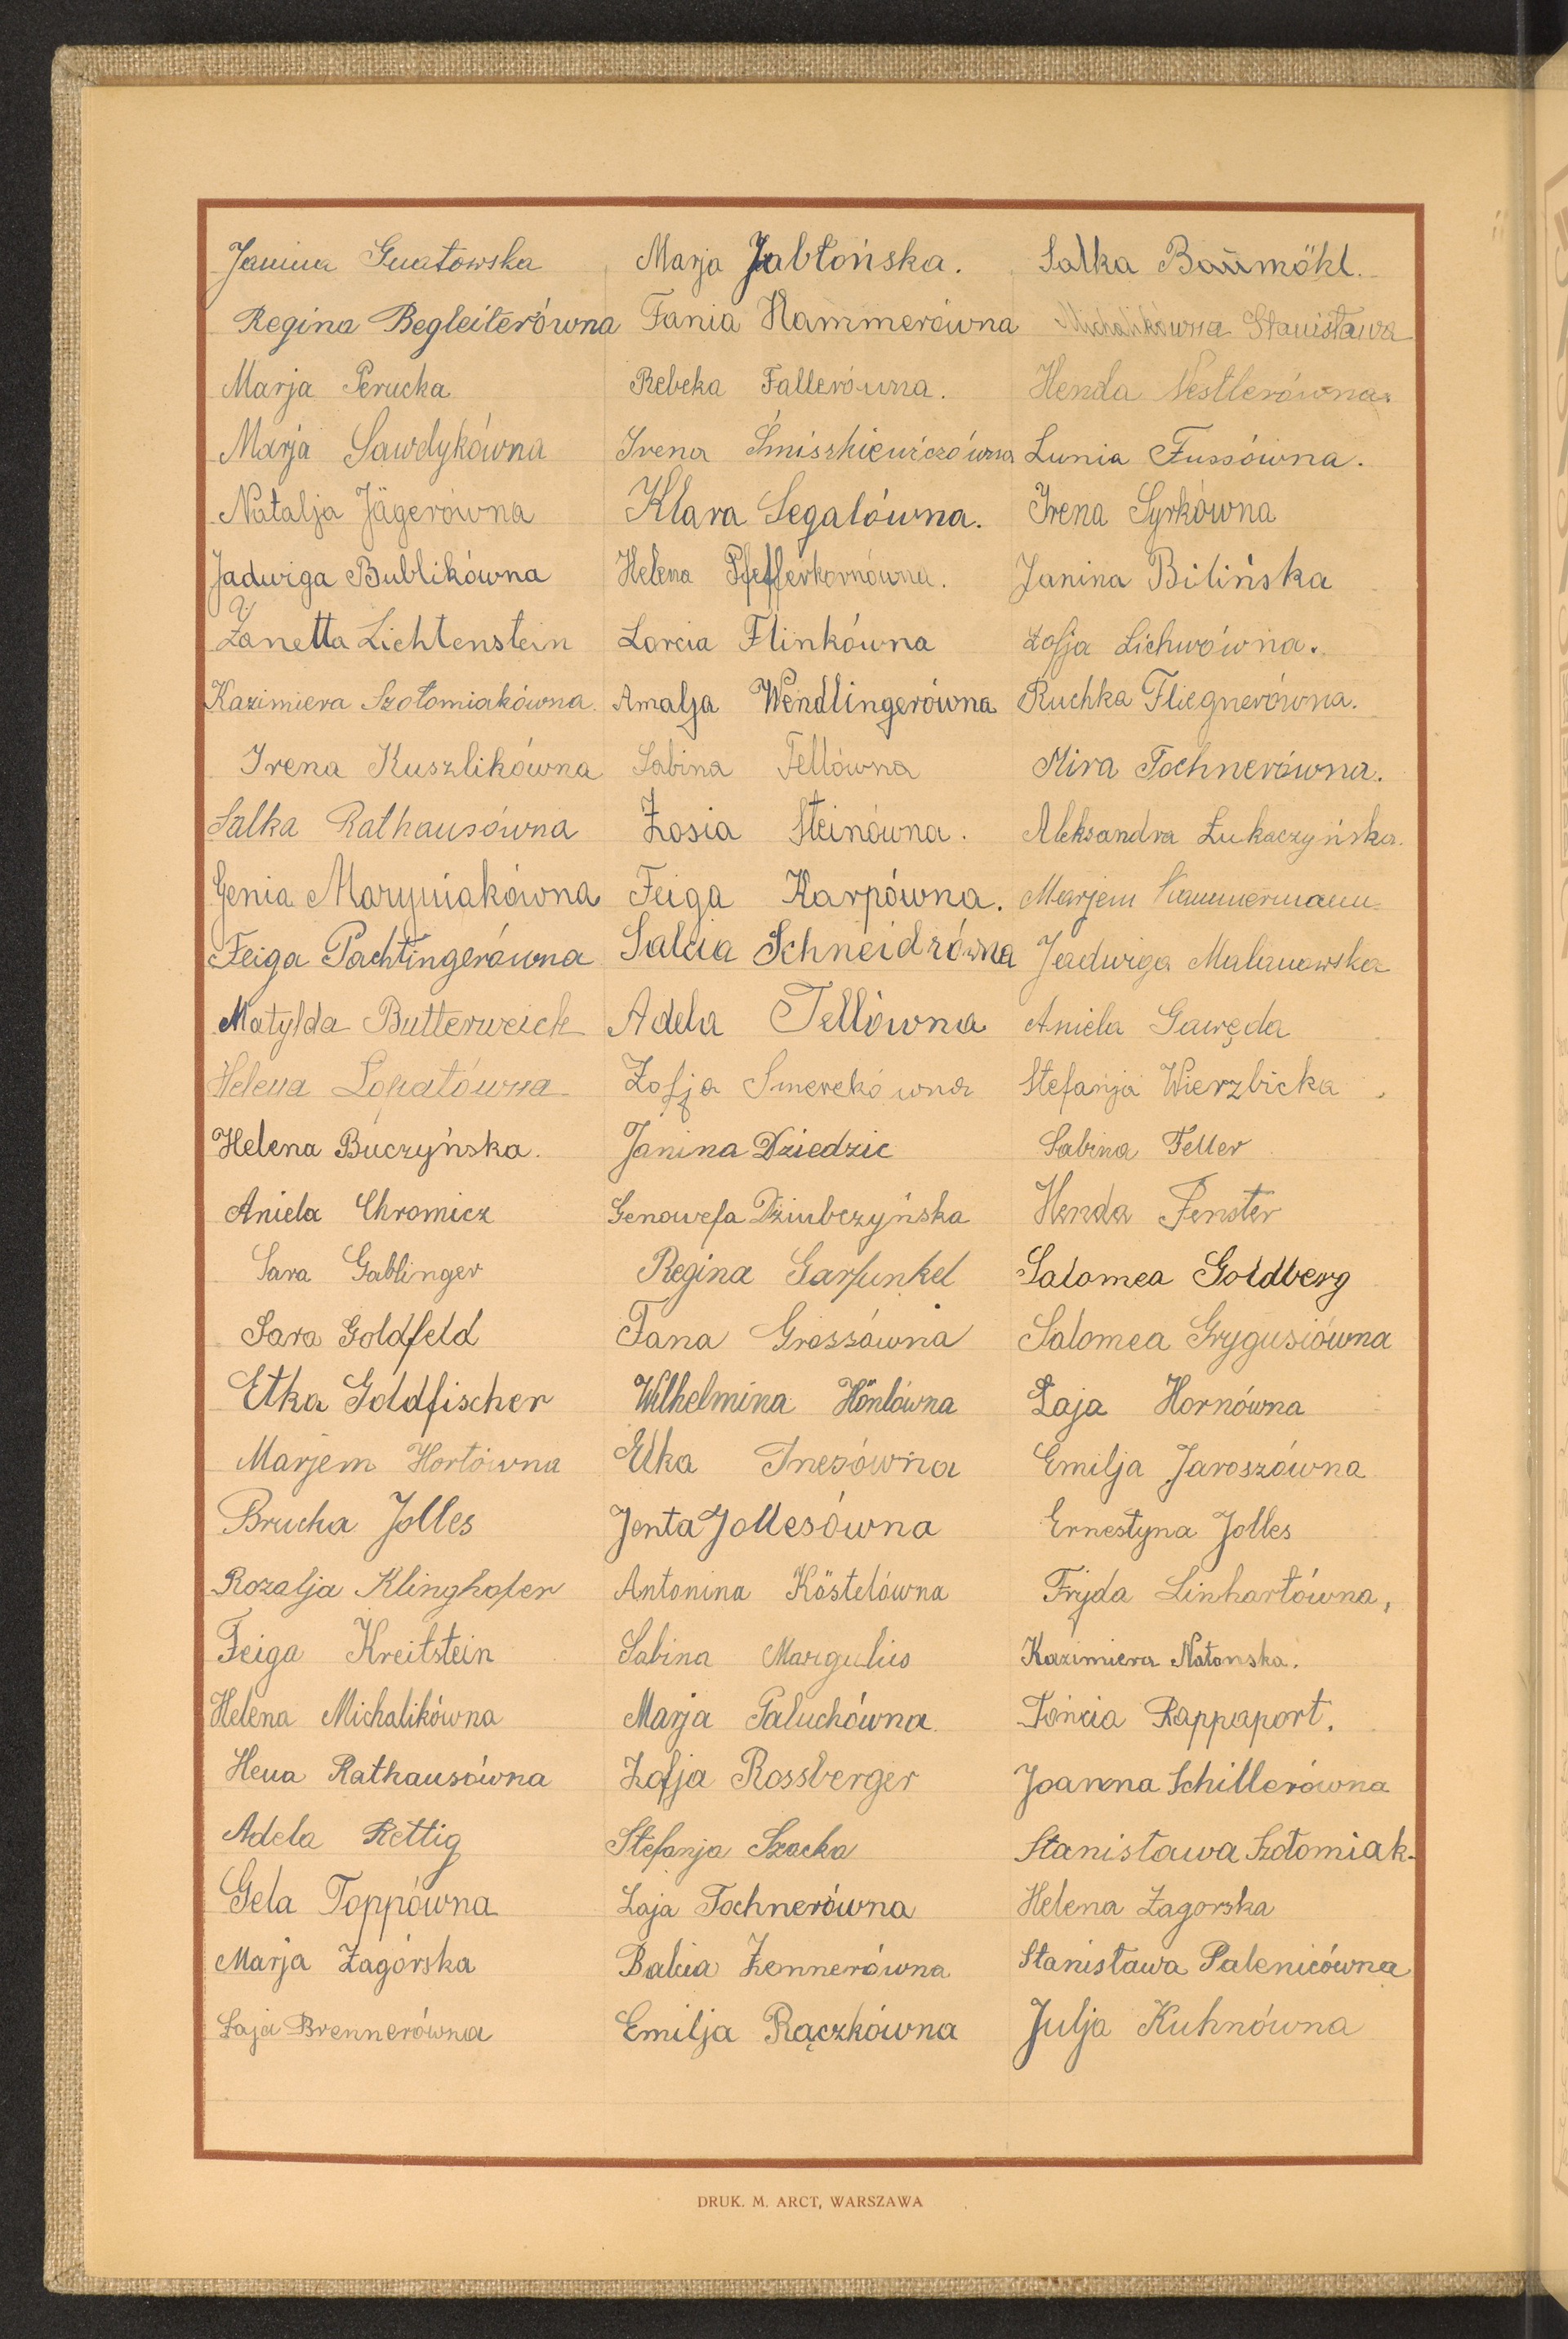 Janina Gnatowska Marja Jabłońska. Salka Baūmöhl.
Regina Begleiterówna Fania Hammerówna Michalikówna Stanisława
Marja Perucka Rebeka Fallerówna. Henda Nestlerówna.
Marja Sawdykówna Irena Śmiszkiewiczówna Lunia Fussówna.
Natalja Jägerówna Klara Segalówna. Irena Syrkówna
Jadwiga Bublikówna Helena Pfefferkornówna. Janina Bilińska
Żanetta Lichtenstein Lorcia Flinkówna Zofja Lichwówna.
Kazimiera Szołomiakówna. Amalja Wendlingerówna Ruchka Fliegnerówna.
Irena Kuszlikówna Sabina Fellówna Mira Tochnerówna.
Salka Rathausówna Zosia Steinówna. Aleksandra Łukaczyńska.
Genia Maryniakówna Feiga Karpówna. Marjem
Feiga Pachtingerówna Salcia Schneidrówna Jadwiga Malanowska
Matylda Butterweich Adela Tellówna Aniela Gawęda
Helena Łopatówna Zofja Smerekówna Stefanja Wierzbicka
Helena Buczyńska. Janina Dziedzic Sabina Feller
Aniela Chromicz Genowefa Dziubczyńska Henda Fenster
Sara Gablinger Regina Garfunkel Salomea Goldberg
Sara Goldfeld Fana Grossówna Salomea Grygusiówna
Etka Goldfischer Wilhelmina Hönlówna Łaja Hornówna
Marjem Hortówna Elka Inesówna Emilja Jaroszówna
Brucha Jolles Jenta Jollesówna Ernestyna Jolles
Rozalja Klinghofer Antonina Köstelówna Fryda Linhartówna,
Feiga Kreitstein Sabina Margulies Kazimiera Natonska.
Helena Michalikówna Marja Paluchówna Tońcia Rappaport.
Hena Rathausówna Zofja Rossberger Joanna Schillerówna
Adela Rettig Stefanja Szacka Stanisława Szołomiak.
Gela Toppówna Łaja Tochnerówna Helena Zagorska
Marja Zagórska Balcia Zennerówna Stanisława Palenicówna
Łaja Brennerówna Emilja Rączkówna Julja Kuhnówna
DRUK. M. ARCT, WARSZAWA